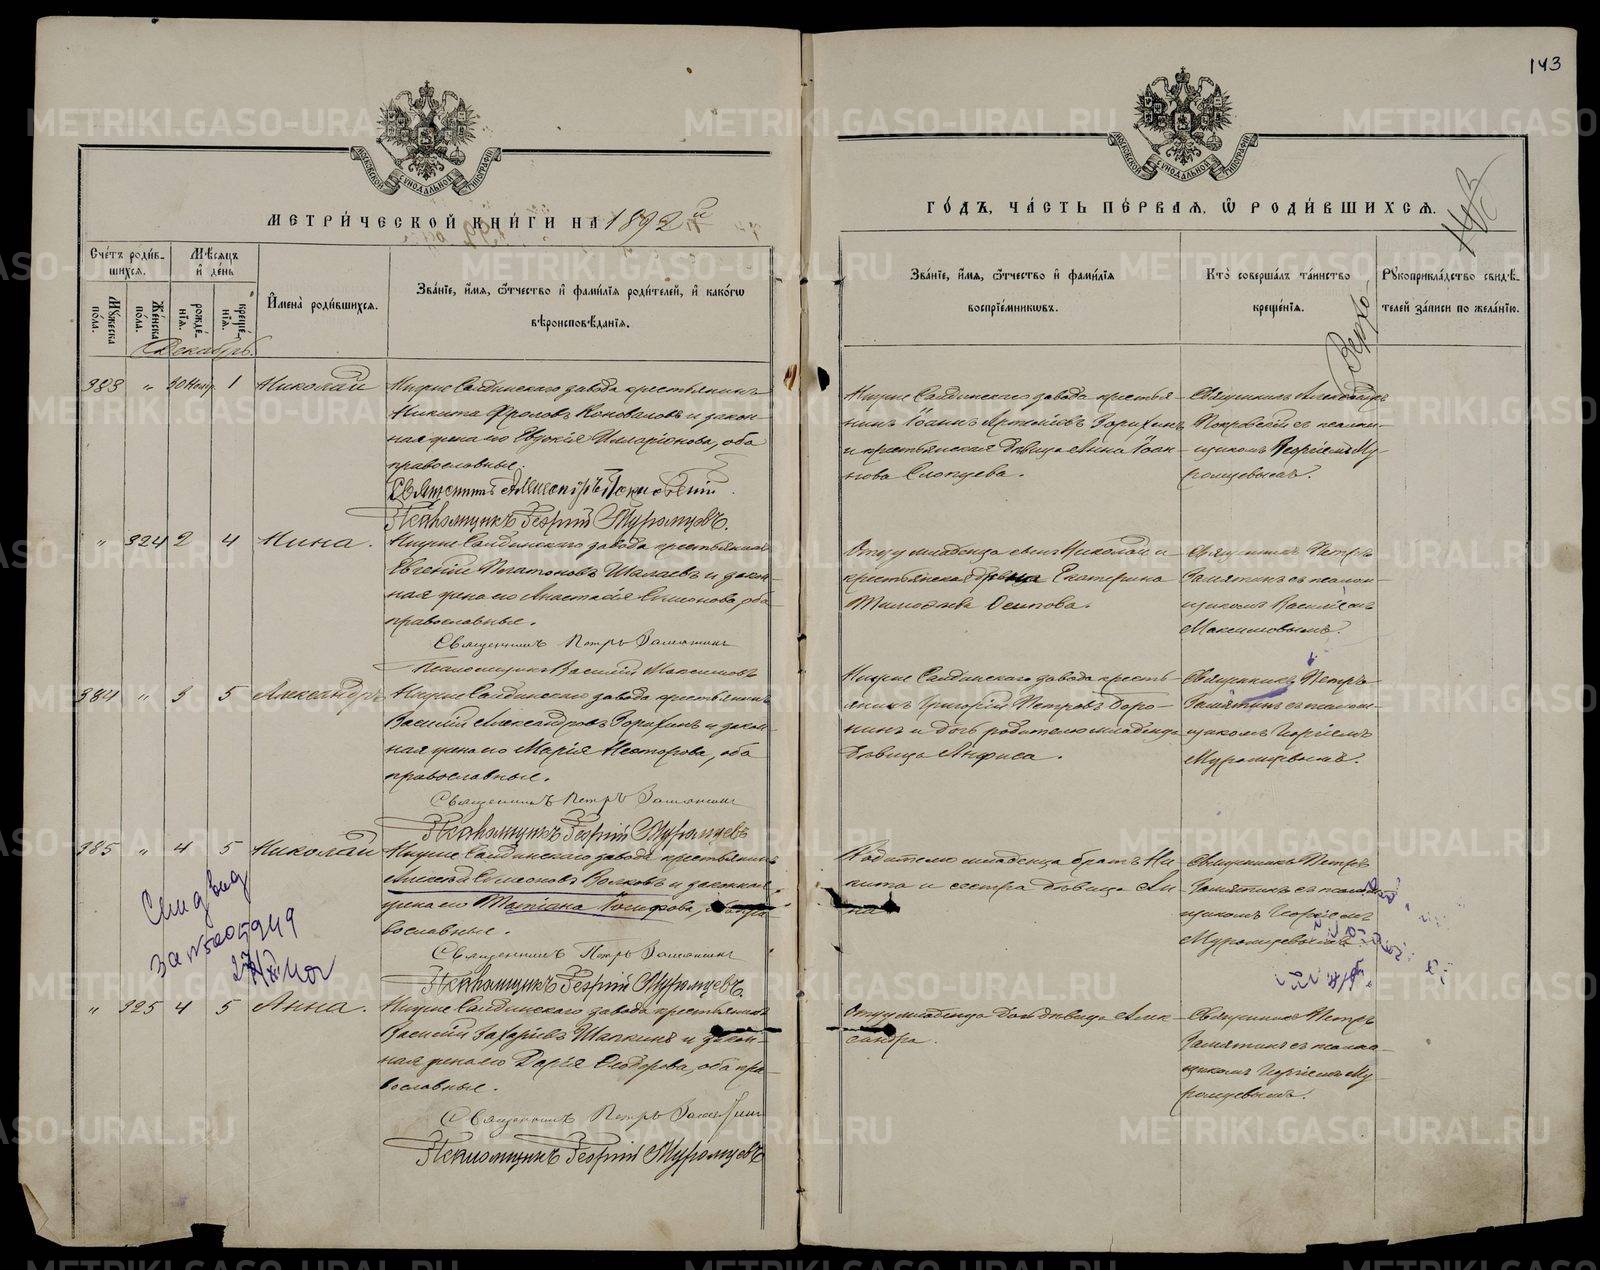 143
МОСКОВСКОЙ СѴНОДАЛЬНОЙ ТИПОГРАФІИ
МОСКОВСКОЙ СѴНОДАЛЬНОЙ ТИПОГРАФІИ
МЕТРИ́ЧЕСКОЙ КНИ́ГИ НА 1892й
ГО́ДЪ, ЧА́СТЬ ПЕ́РВАЯ, Ѡ РОДИ́ВШИХСЯ.
Сче́тъ роди́в-
шихся.
Му́жеска по́ла.
Же́нска по́ла.
Мѣ́сяцъ
и҆ де́нь
рожде́-
нїя.
креще́-
нїя.
И҆мена̀ роди́вшихся.
Зва́нїе, и҆́мя, ѻ҆́тчество и҆ фами́лїя роди́телей, и҆ како́гѡ
вѣроисповѣ́данїя.
Зва́нїе, и҆́мя, ѻ҆́тчество и҆ фами́лїя
воспрїе́мникѡвъ.
Кто̀ соверша́лъ та́инство
креще́нїя.
Рꙋкоприкла́дство свидѣ́-
телей за́писи по жела́нїю.
Декабрь.
383 " 30 Нояб. 1 Николай
Нижне Салдинскаго завода крестьянинъ
Никита Фроловъ Коноваловъ и закон-
ная жена его Евдокія Илларіонова, оба
православные.
Священникъ Александръ Покровскій.
Псаломщикъ Георгій Муромцевъ.
Нижне Салдинскаго завода крестья-
нинъ Іоаннъ Артемовъ Зорихинъ
и крестьянская дѣвица Анна Іоан-
нова Слопцева.
Священникъ Александръ
Покровскій съ псалом-
щикомъ Георгіемъ Му-
ромцевымъ.
" 324 2 4 Нина.
Нижне Салдинскаго завода крестьянинъ
Евгеній Платоновъ Шалаевъ и закон-
ная жена его Анастасія Симеонова, оба
православные.
Священникъ Петръ Замятинъ
Псаломщикъ Василій Максимовъ
Отцу младенца сынъ Николай и
крестьянская дѣвица Екатерина
Тимофеева Осипова.
Священникъ Петръ
Замятинъ съ псалом-
щикомъ Василіемъ
Максимовымъ.
384 " 3 5 Александръ
Нижне Салдинскаго завода крестьянинъ
Василій Александровъ Зорихинъ и закон-
ная жена его Марія Несторова, оба
православные.
Священникъ Петръ Замятинъ
Псаломщикъ Георгій Муромцевъ
Нижне Салдинскаго завода кресть-
янинъ Григорій Петровъ Доро-
нинъ и дочь родителю младенца
дѣвица Анфиса.
Священникъ Петръ
Замятинъ съ псалом-
щикомъ Георгіемъ
Муромцевымъ.
385 " 4 5 Николай
Нижне Салдинскаго завода крестьянинъ
Алексѣй Симеоновъ Волковъ и законная
жена его Татіана Іосифова, оба пра-
вославные.
Священникъ Петръ Замятинъ
Псаломщикъ Георгій Муромцевъ.
Родителю младенца братъ Ни-
кита и сестра дѣвица Ан-
на
Священникъ Петръ
Замятинъ съ псалом-
щикомъ Георгіемъ
Муромцевымъ.
" 325 4 5 Анна.
Нижне Салдинскаго завода крестьянинъ
Василій Захаровъ Шапкинъ и закон-
ная жена его Дарія Ѳеодорова, оба пра-
вославные.
Священникъ Петръ Замятинъ
Псаломщикъ Георгій Муромцевъ
Отцу младенца дочь дѣвица Алек-
сандра.
Священникъ Петръ
Замятинъ съ псалом-
щикомъ Георгіемъ Му-
ромцевымъ.
METRIKI.GASO-URAL.RU